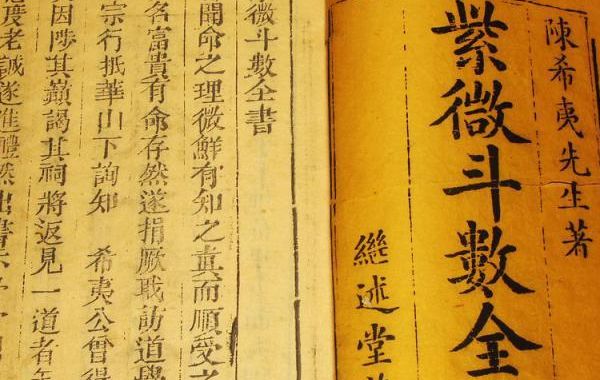 陳希夷先生著
紫微斗數全
繼述堂
微斗數全書
聞命之理微鮮有知之真而順受之
名富貴有命存然遂捐厥職訪道學
宗行抵華山下詢知　希夷公曾得
因陟其巔謁其祠將返見一道者年
度老誠遂進禮然出書